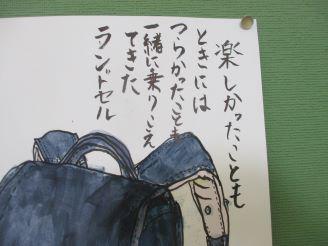 楽しかったことも
ときには
つらかったことも
一緒に乗りこえ
てきた
ランドセル